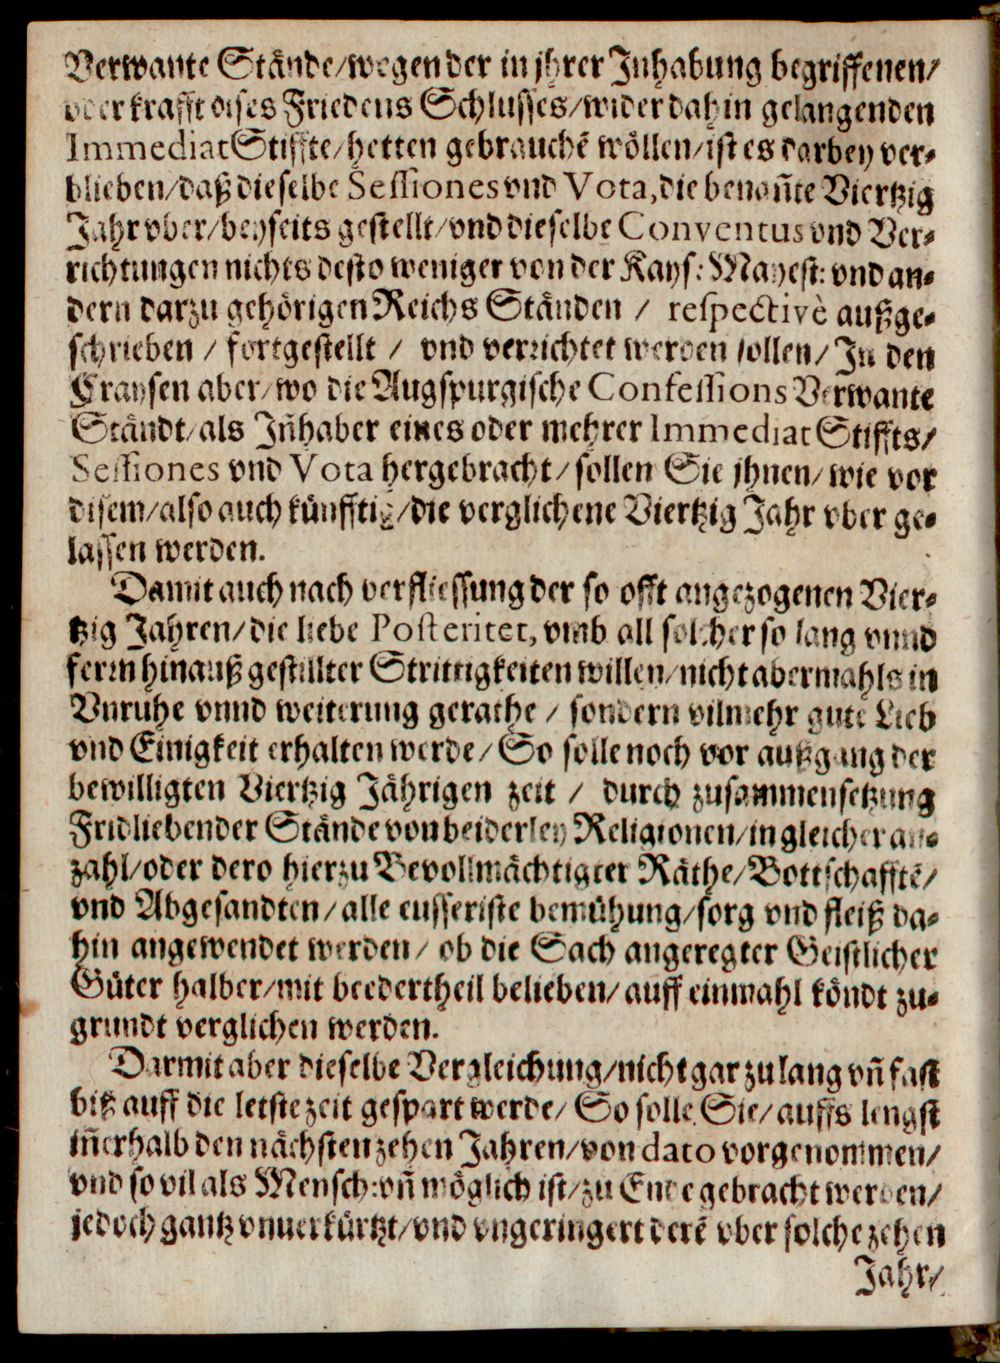 Verwante Stände/wegen der in jhrer Inhabung begriffenen/
oder krafft dises Friedens Schlusses/wider dahin gelangenden
Immediat Stiffte/hetten gebrauchē wöllen/ist es darbey ver-
blieben/daß dieselbe Sessiones vnd Vota, die benan̄te Viertzig
Jahr vber/beyseits gestellt/vnd dieselbe Conventus vnd Ver-
richtungen nichts desto weniger von der Kays: Mayest: vnd an-
dern darzu gehörigen Reichs Ständen / respectivè außge-
schrieben / fortgestellt / vnd verrichtet werden sollen/ In den
Craysen aber/wo die Augspurgische Confessions Verwante
Ständt/als In̄haber eines oder mehrer Immediat Stiffts/
Sessiones vnd Vota hergebracht/sollen Sie jhnen/wie vor
disem/also auch künfftig/die verglichene Viertzig Jahr vber ge-
lassen werden.
Damit auch nach verfliessung der so offt angezogenen Vier-
tzig Jahren/die liebe Posteritet, vmb all solcher so lang vnnd
fermn hinauß gestillter Strittigkeiten willen/nicht abermahls in
Vnruhe vnnd weiterung gerathe / sondern vilmehr gute Lieb
vnd Einigkeit erhalten werde/ So solle noch vor außgang der
bewilligten Viertzig Jährigen zeit / durch zusammensetzung
Fridliebender Stände von beiderley Religionen/in gleicher an-
zahl/oder dero hierzu Bevollmächtigter Räthe/Bottschafftē/
vnd Abgesandten/alle eusseriste bemühung/sorg vnd fleiß da-
hin angewendet werden/ ob die Sach angeregter Geistlicher
Güter halber/mit beedertheil belieben/auff einmahl köndt zu-
grundt verglichen werden.
Darmit aber dieselbe Vergleichung/nicht gar zu lang vn̄ fast
biß auff die letste zeit gespart werde/ So solle Sie/auffs lengst
in̄erhalb den nächsten zehen Jahren/von dato vorgenommen/
vnd so vil als Mensch: vn̄ möglich ist/zu Ende gebracht werden/
jedoch gantz vnuerkürtzt/vnd vngeringert derē vber solche zehen
Jahr/